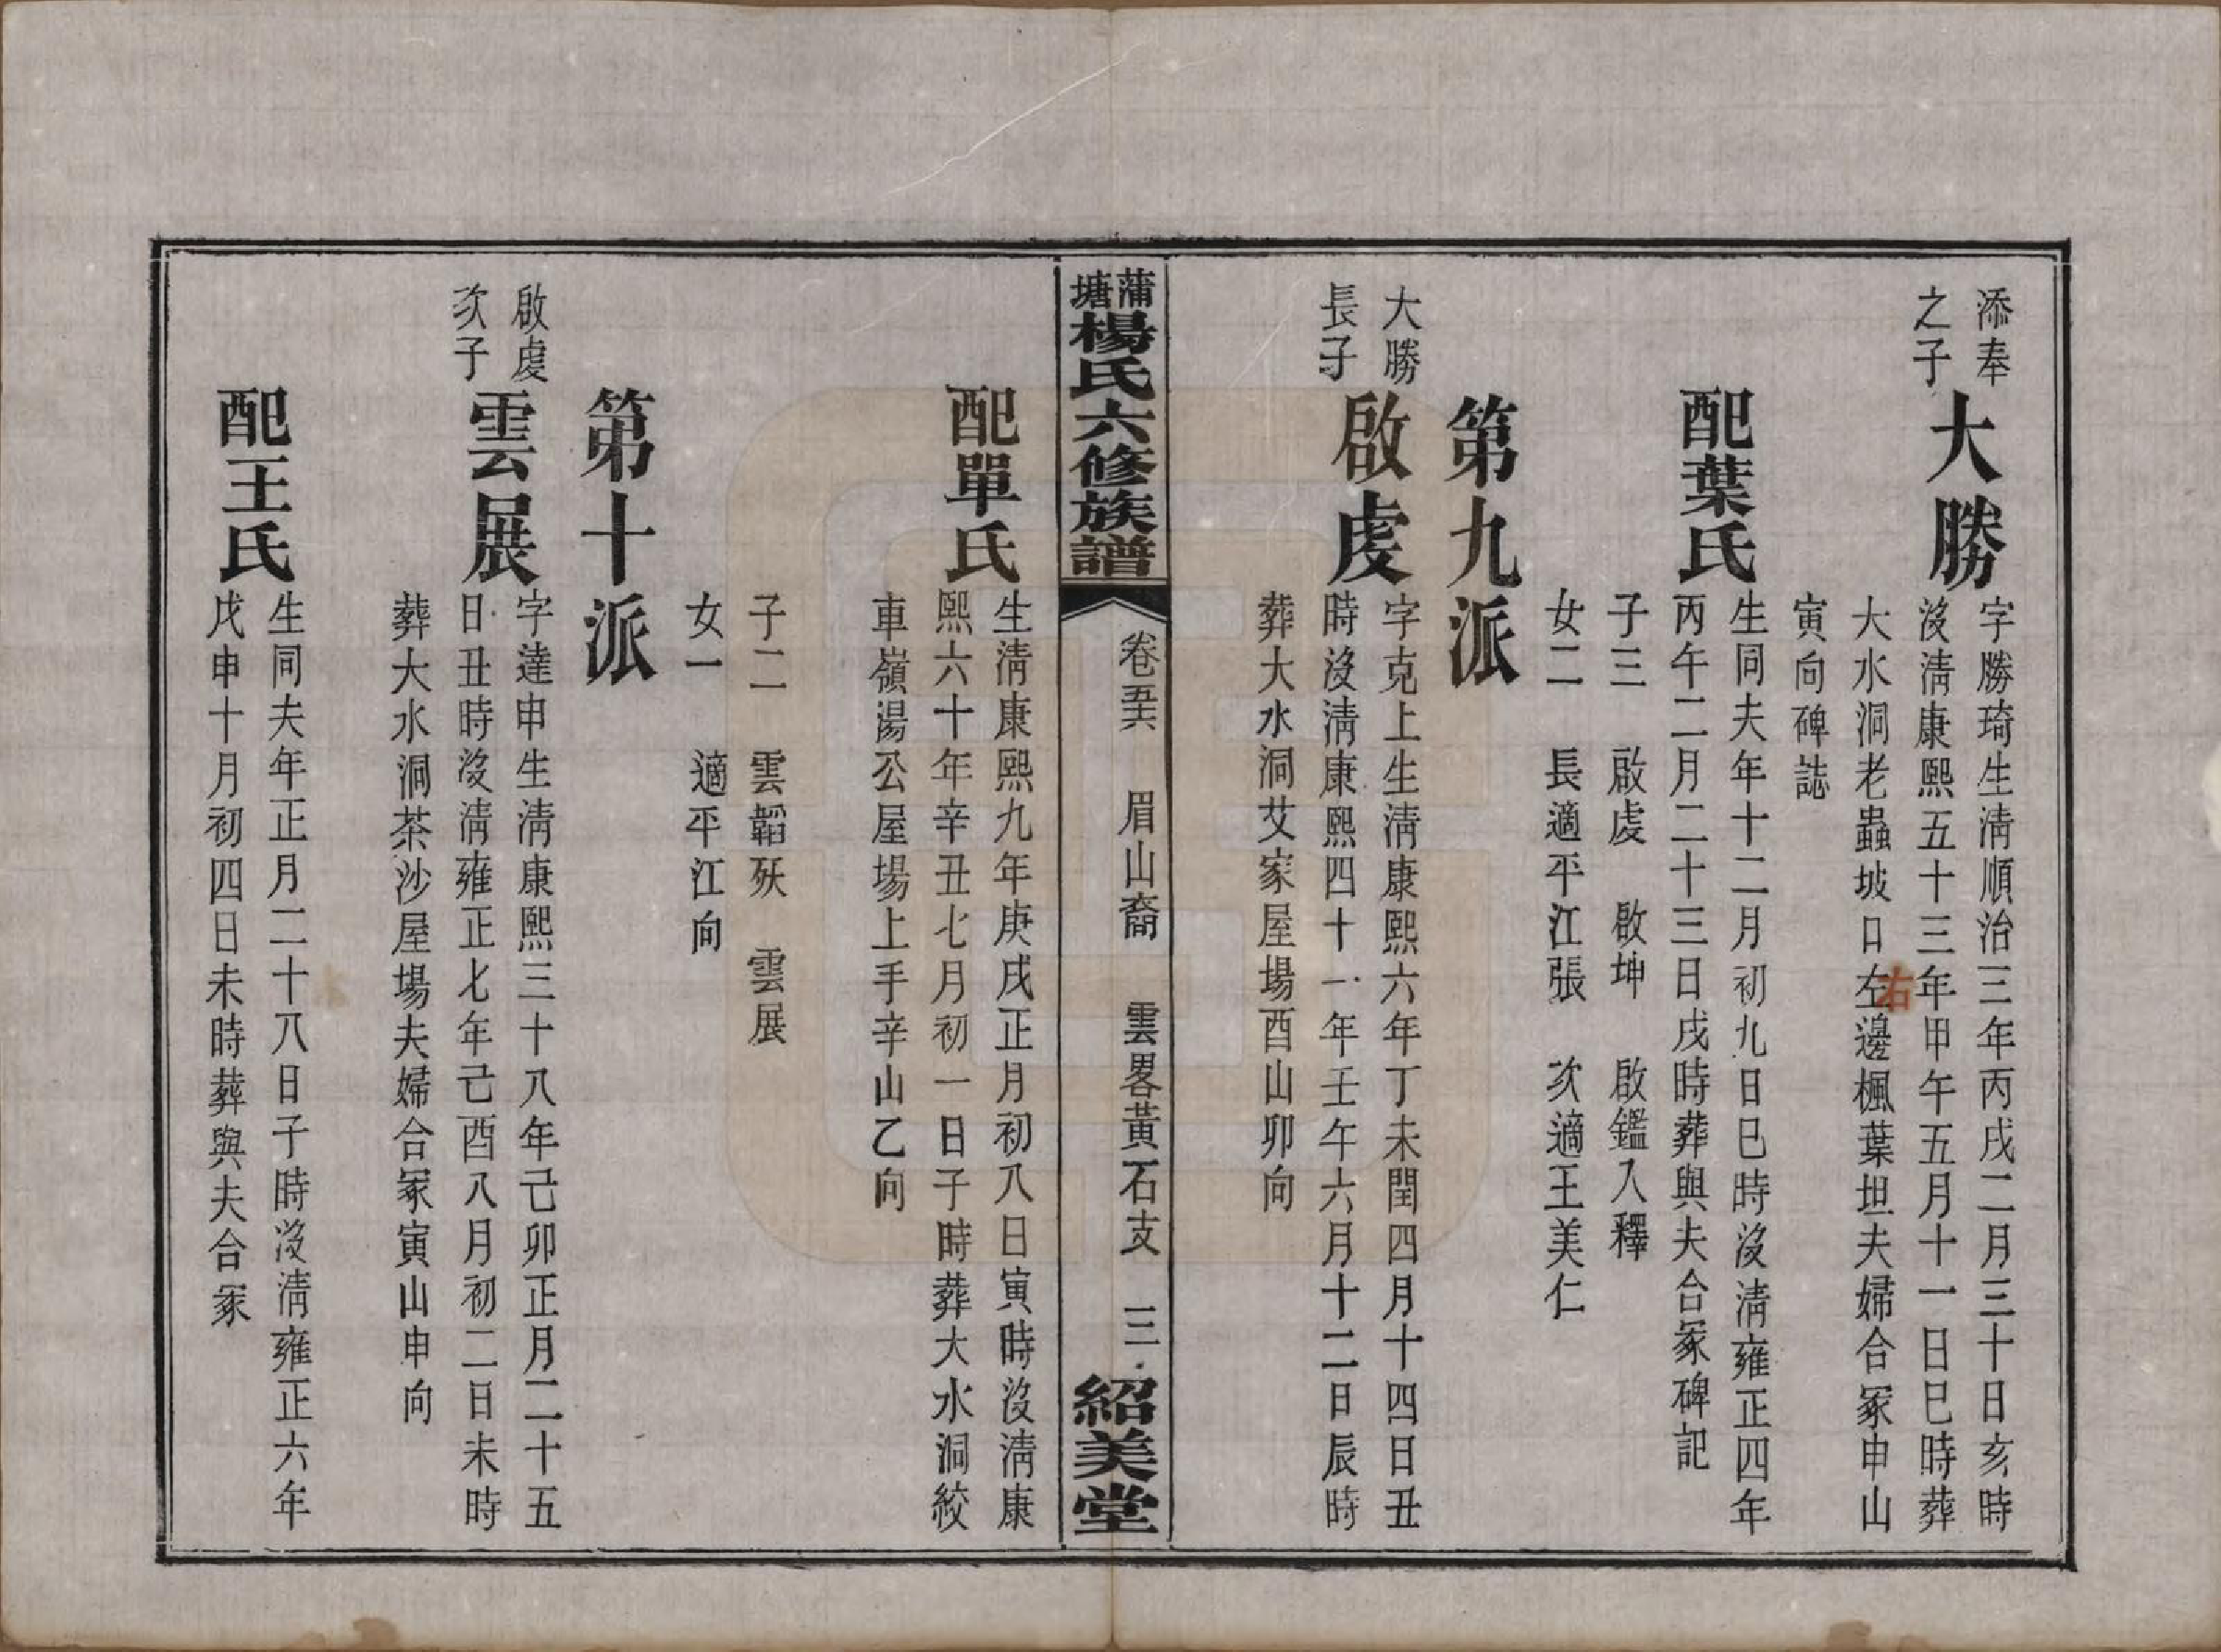 添奉
之子
大勝
字勝琦生清順治三年丙戌二月三十日亥時
沒清康熙五十三年甲午五月十一日巳時葬
大水洞老蟲坡口左邊楓葉坦夫婦合冢申山
右
寅向碑誌
配葉氏
生同夫年十二月初九日巳時沒清雍正四年
丙午二月二十三日戌時葬與夫合冢碑記
子三 啟虔 啟坤 啟鑑入釋
女二 長適平江張 次適王美仁
第九派
大勝
長子
啟虔
字克上生清康熙六年丁未閏四月十四日丑
時沒清康熙四十一年壬午六月十二日辰時
葬大水洞艾家屋場酉山卯向
蒲塘楊氏六修族譜
卷五六 眉山裔 雲畧黃石支 三
紹美堂
配單氏
生清康熙九年庚戌正月初八日寅時沒清康
熙六十年辛丑七月初一日子時葬大水洞絞
車嶺湯公屋場上手辛山乙向
子二 雲韜殀 雲展
女一 適平江向
第十派
啟虔
次子
雲展
字達申生清康熙三十八年己卯正月二十五
日丑時沒清雍正七年己酉八月初二日未時
葬大水洞茶沙屋場夫婦合冢寅山申向
配王氏
生同夫年正月二十八日子時沒清雍正六年
戊申十月初四日未時葬與夫合冢